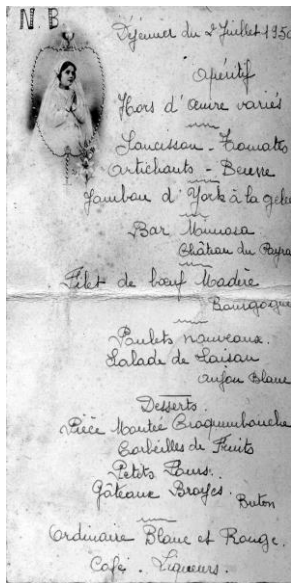 N. B
Déjeuner du 2 Juillet 1950
Apéritif
Hors d'Œuvre variés
Saucisson - Tomates
Artichauts - Beurre
Jambon d'York à la gelée
Bar Mimosa
Château du Payra
Filet de bœuf Madère
Bourgogne
Poulets nouveaux.
Salade de Saison
Anjou Blanc
Desserts.
Pièce Montée Croquembouche
Corbeilles de Fruits
Petits Fours.
Gâteaux Broyés.
Buton
Ordinaire Blanc et Rouge.
Café. Liqueurs.